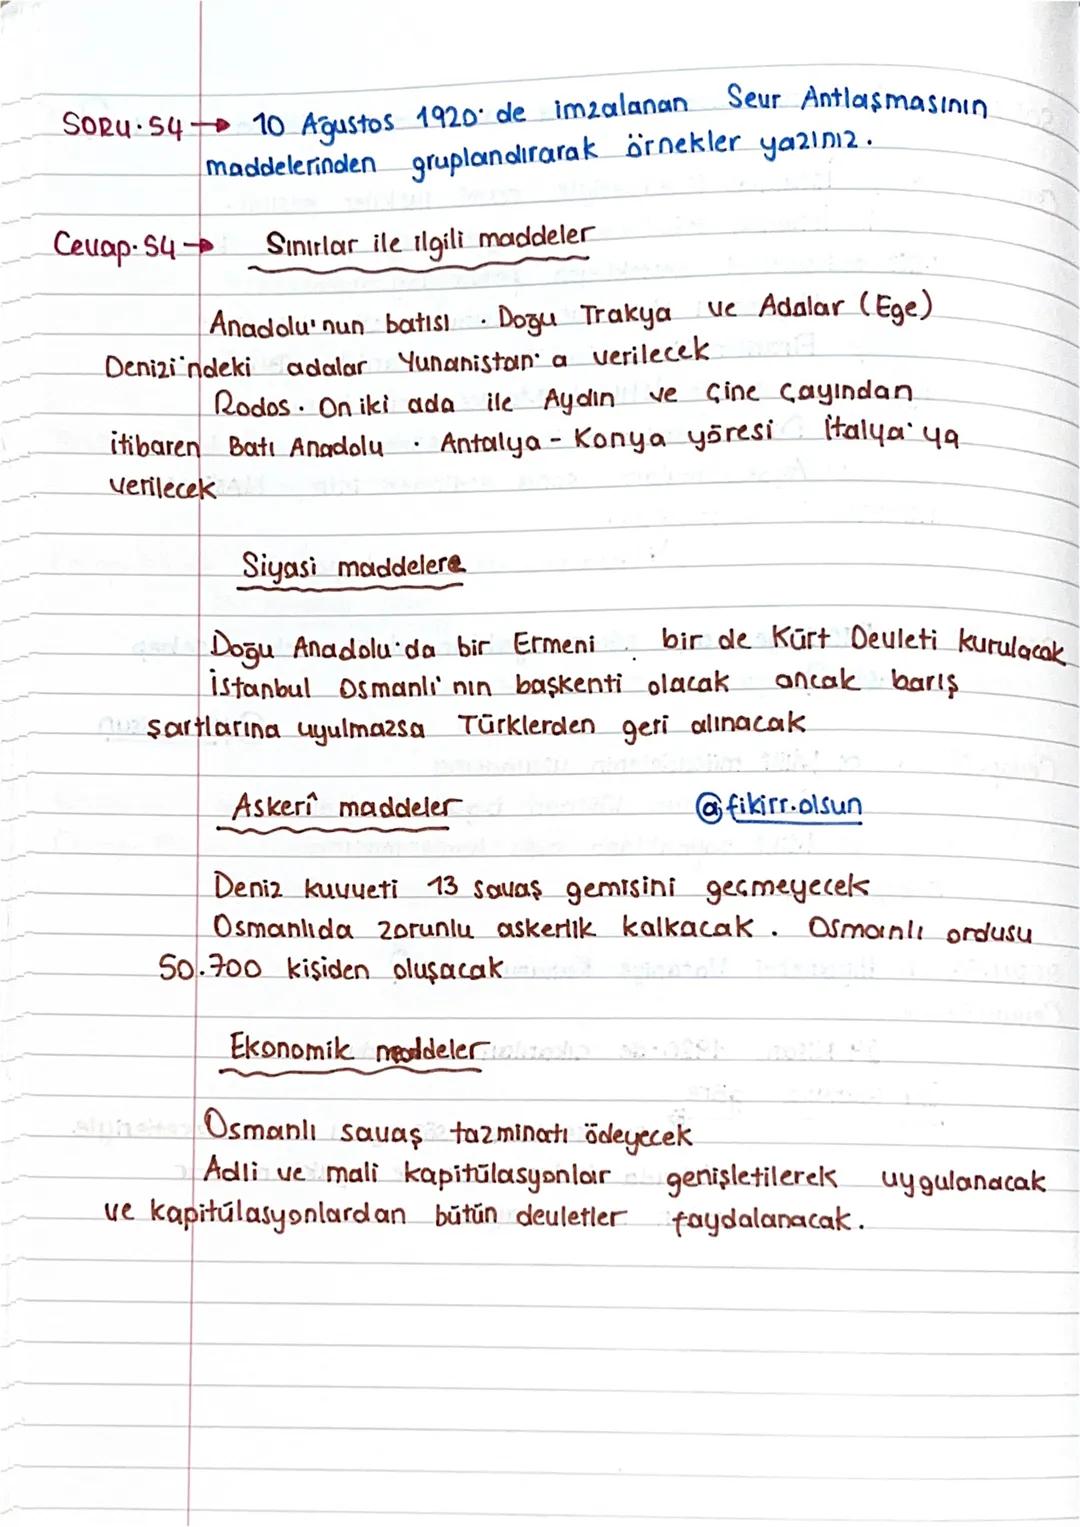 SORU.54 → 10 Ağustos 1920'de imzalanan Sevr Antlaşmasının
maddelerinden gruplandırarak örnekler yazınız.
Cevap.54 → Sınırlar ile ilgili maddeler
Anadolu'nun batısı . Doğu Trakya ve Adalar (Ege)
Denizi'ndeki adalar Yunanistan'a verilecek
Rodos. On iki ada ile Aydın ve Çine Çayından
itibaren Batı Anadolu . Antalya - Konya yöresi İtalya'ya
verilecek
Siyasi maddelere
Doğu Anadolu'da bir Ermeni . bir de Kürt Devleti kurulacak
İstanbul Osmanlı'nın başkenti olacak ancak barış
şartlarına uyulmazsa Türklerden geri alınacak
Askerî maddeler @fikirr.olsun
Deniz kuvveti 13 savaş gemisini geçmeyecek
Osmanlıda zorunlu askerlik kalkacak . Osmanlı ordusu
50.700 kişiden oluşacak
Ekonomik maddeler
Osmanlı savaş tazminatı ödeyecek
Adli ve mali kapitülasyonlar genişletilerek uygulanacak
ve kapitülasyonlardan bütün devletler faydalanacak.